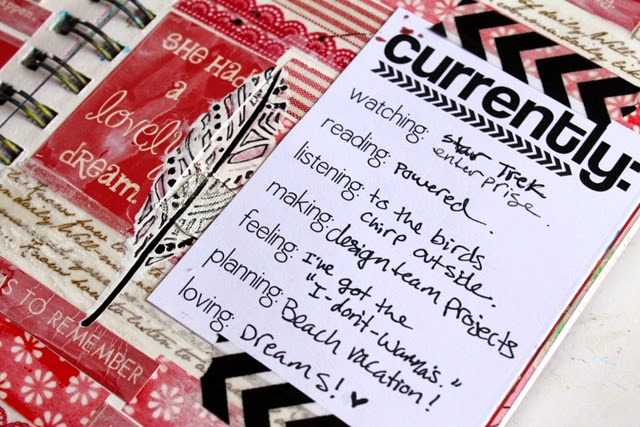 SHE HAD
a
lovely
dream.
S TO REMEMBER
currently:
watching: Star Trek
enterprise.
reading: Powered.
listening: to the birds
chirp outside.
making: design team projects
feeling: I've got the
"I-don't-wanna's."
planning: Beach vacation!
loving: Dreams! ♥